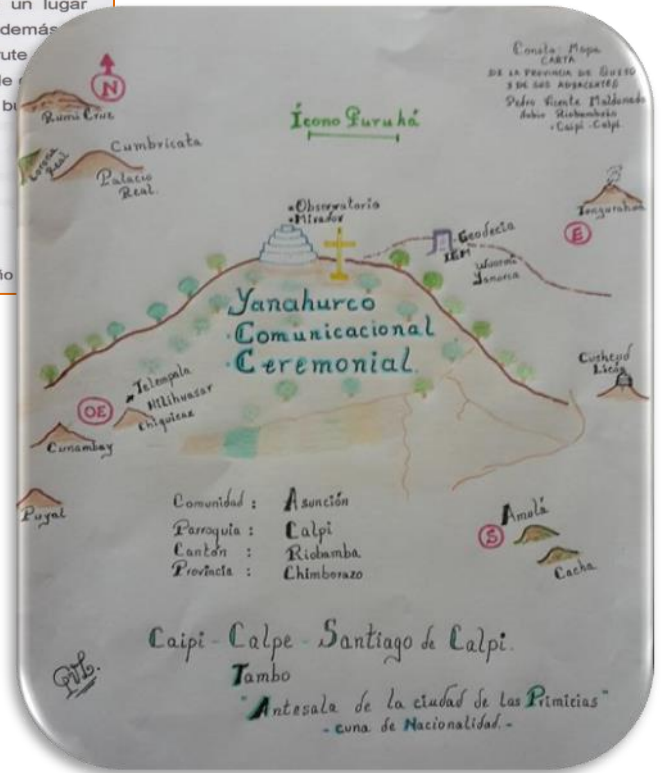 un lugar
demás
rute
de
bu
N
Rumi Cruz
Corona
Real
Cumbricata
Palacio
Real.
Ícono Puruhá
Consta: Mapa
CARTA
DE LA PROVINCIA DE QUITO
Y DE SUS ADJACENTES
Pedro Vicente Maldonado
Rubio Riobambeño
• Caipi - Calpi.
• Observatorio
• Mirador
Geodecia
IGM
Tungurahua
E
Yanahurco
• Comunicacional
• Ceremonial.
Cushcud
Licán
OE
• Telempala
Nilihuasar
Chiquicaz
Cunambay
Puyal
Comunidad : Asunción
Parroquia : Calpi
Cantón : Riobamba
Provincia : Chimborazo
Amolá
S
Cacha
Caipi - Calpe - Santiago de Calpi.
Tambo
"Antesala de la ciudad de las Primicias"
- cuna de Nacionalidad. -